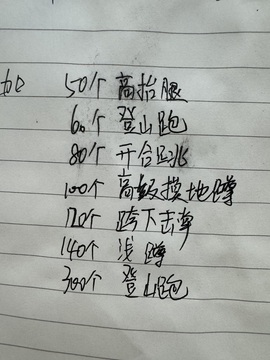 50个 高抬腿
60个 登山跑
80个 开合跳
100个 高级摸地蹲
120个 跨下击掌
140个 浅蹲
300个 登山跑